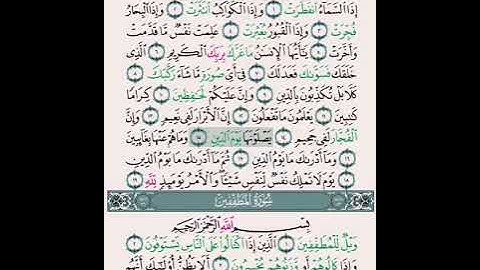 إِذَا ٱلسَّمَآءُ ٱنفَطَرَتْ ١ وَإِذَا ٱلْكَوَاكِبُ ٱنتَثَرَتْ ٢ وَإِذَا ٱلْبِحَارُ
فُجِّرَتْ ٣ وَإِذَا ٱلْقُبُورُ بُعْثِرَتْ ٤ عَلِمَتْ نَفْسٌ مَّا قَدَّمَتْ
وَأَخَّرَتْ ٥ يَٰٓأَيُّهَا ٱلْإِنسَٰنُ مَا غَرَّكَ بِرَبِّكَ ٱلْكَرِيمِ ٦ ٱلَّذِى
خَلَقَكَ فَسَوَّىٰكَ فَعَدَلَكَ ٧ فِىٓ أَىِّ صُورَةٍ مَّا شَآءَ رَكَّبَكَ ٨
كَلَّا بَلْ تُكَذِّبُونَ بِٱلدِّينِ ٩ وَإِنَّ عَلَيْكُمْ لَحَٰفِظِينَ ١٠ كِرَامًا
كَٰتِبِينَ ١١ يَعْلَمُونَ مَا تَفْعَلُونَ ١٢ إِنَّ ٱلْأَبْرَارَ لَفِى نَعِيمٍ ١٣ وَإِنَّ
ٱلْفُجَّارَ لَفِى جَحِيمٍ ١٤ يَصْلَوْنَهَا يَوْمَ ٱلدِّينِ ١٥ وَمَا هُمْ عَنْهَا بِغَآئِبِينَ
١٦ وَمَآ أَدْرَىٰكَ مَا يَوْمُ ٱلدِّينِ ١٧ ثُمَّ مَآ أَدْرَىٰكَ مَا يَوْمُ ٱلدِّينِ
١٨ يَوْمَ لَا تَمْلِكُ نَفْسٌ لِّنَفْسٍ شَيْـًٔا وَٱلْأَمْرُ يَوْمَئِذٍ لِّلَّهِ ١٩
سُورَةُ المُطَفِّفِينَ
بِسْمِ ٱللَّهِ ٱلرَّحْمَٰنِ ٱلرَّحِيمِ
وَيْلٌ لِّلْمُطَفِّفِينَ ١ ٱلَّذِينَ إِذَا ٱكْتَالُوا۟ عَلَى ٱلنَّاسِ يَسْتَوْفُونَ ٢
وَإِذَا كَالُوهُمْ أَو وَّزَنُوهُمْ يُخْسِرُونَ ٣ أَلَا يَظُنُّ أُو۟لَٰٓئِكَ أَنَّهُم